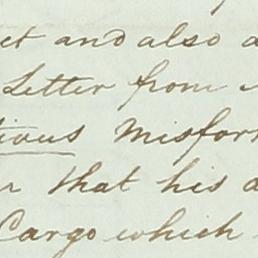 and also
Letter from
Misfor
that his
Cargo which